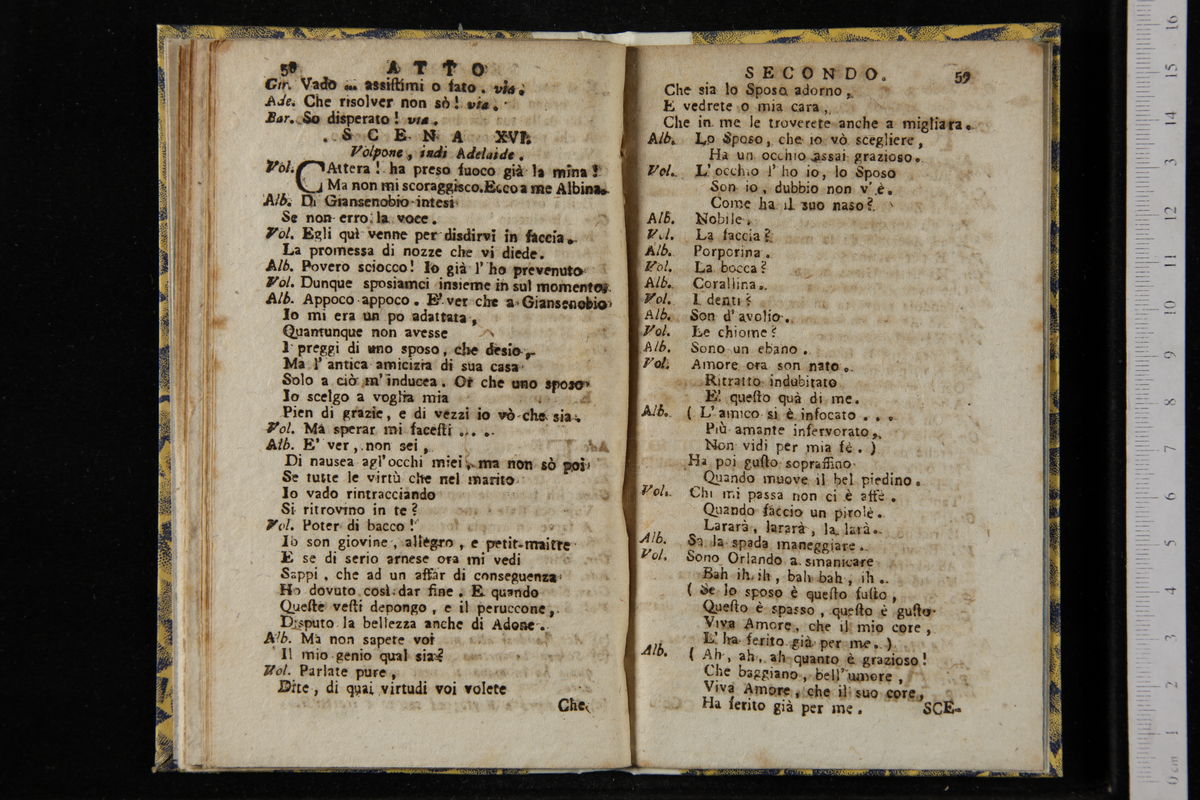 58 ATTO
Gir. Vado ... assiſtimi o fato. via.
Ade. Che risolver non sò! via.
Bar. So disperato! via.
SCENA XVI.
Volpone, indi Adelaide.
Vol. CAttera! ha preso fuoco già la mina!
Ma non mi scoraggisco. Ecco a me Albina.
Alb. Di Giansenobio intesi
Se non erro, la voce.
Vol. Egli quì venne per disdirvi in faccia.
La promessa di nozze che vi diede.
Alb. Povero sciocco! Io già l'ho prevenuto
Vol. Dunque sposiamci insieme in sul momento.
Alb. Appoco appoco. E' ver che a Giansenobio
Io mi era un po adattata,
Quantunque non avesse
I preggi di uno sposo, che desio,
Ma l'antica amicizia di sua casa
Solo a ciò m'inducea. Or che uno sposo
Io scelgo a voglia mia
Pien di grazie, e di vezzi io vò che sia.
Vol. Ma sperar mi faceſti ....
Alb. E' ver, non sei,
Di nausea agl'occhi miei, ma non sò poi
Se tutte le virtù che nel marito
Io vado rintracciando
Si ritrovino in te?
Vol. Poter di bacco!
Io son giovine, allegro, e petit-maitre
E se di serio arnese ora mi vedi
Sappi, che ad un affàr di conseguenza
Ho dovuto così dar fine. E quando
Queſte veſti depongo, e il peruccone,
Disputo la bellezza anche di Adone.
Alb. Ma non sapete voi
Il mio genio qual sia?
Vol. Parlate pure,
Dite, di quai virtudi voi volete
Che
SECONDO. 59
Che sia lo Sposo adorno,
E vedrete o mia cara,
Che in me le troverete anche a migliara.
Alb. Lo Sposo, che io vò scegliere,
Ha un occhio assai grazioso.
Vol. L'occhio l'ho io, lo Sposo
Son io, dubbio non v'è.
Come ha il suo naso?
Alb. Nobile.
Vol. La faccia?
Alb. Porporina.
Vol. La bocca?
Alb. Corallina.
Vol. I denti?
Alb. Son d'avolio.
Vol. Le chiome?
Alb. Sono un ebano.
Vol. Amore ora son nato.
Ritratto indubitato
E' queſto quà di me.
Alb. ( L'amico si è infocato ...
Più amante infervorato,
Non vidi per mia fè. )
Ha poi guſto sopraffino
Quando muove il bel piedino.
Vol. Chi mi passa non ci è affè.
Quando faccio un pirolè.
Lararà, lararà, la larà.
Alb. Sa la spada maneggiare.
Vol. Sono Orlando a smanicare
Bah ih, ih, bah bah, ih.
( Se lo sposo è queſto fuſto,
Queſto è spasso, queſto è guſto
Viva Amore, che il mio core,
L'ha ferito già per me. )
Alb. ( Ah, ah, ah quanto è grazioso!
Che baggiano, bell'umore,
Viva Amore, che il suo core,
Ha ferito già per me. SCE-
0 cm 1 2 3 4 5 6 7 8 9 10 11 12 13 14 15 16